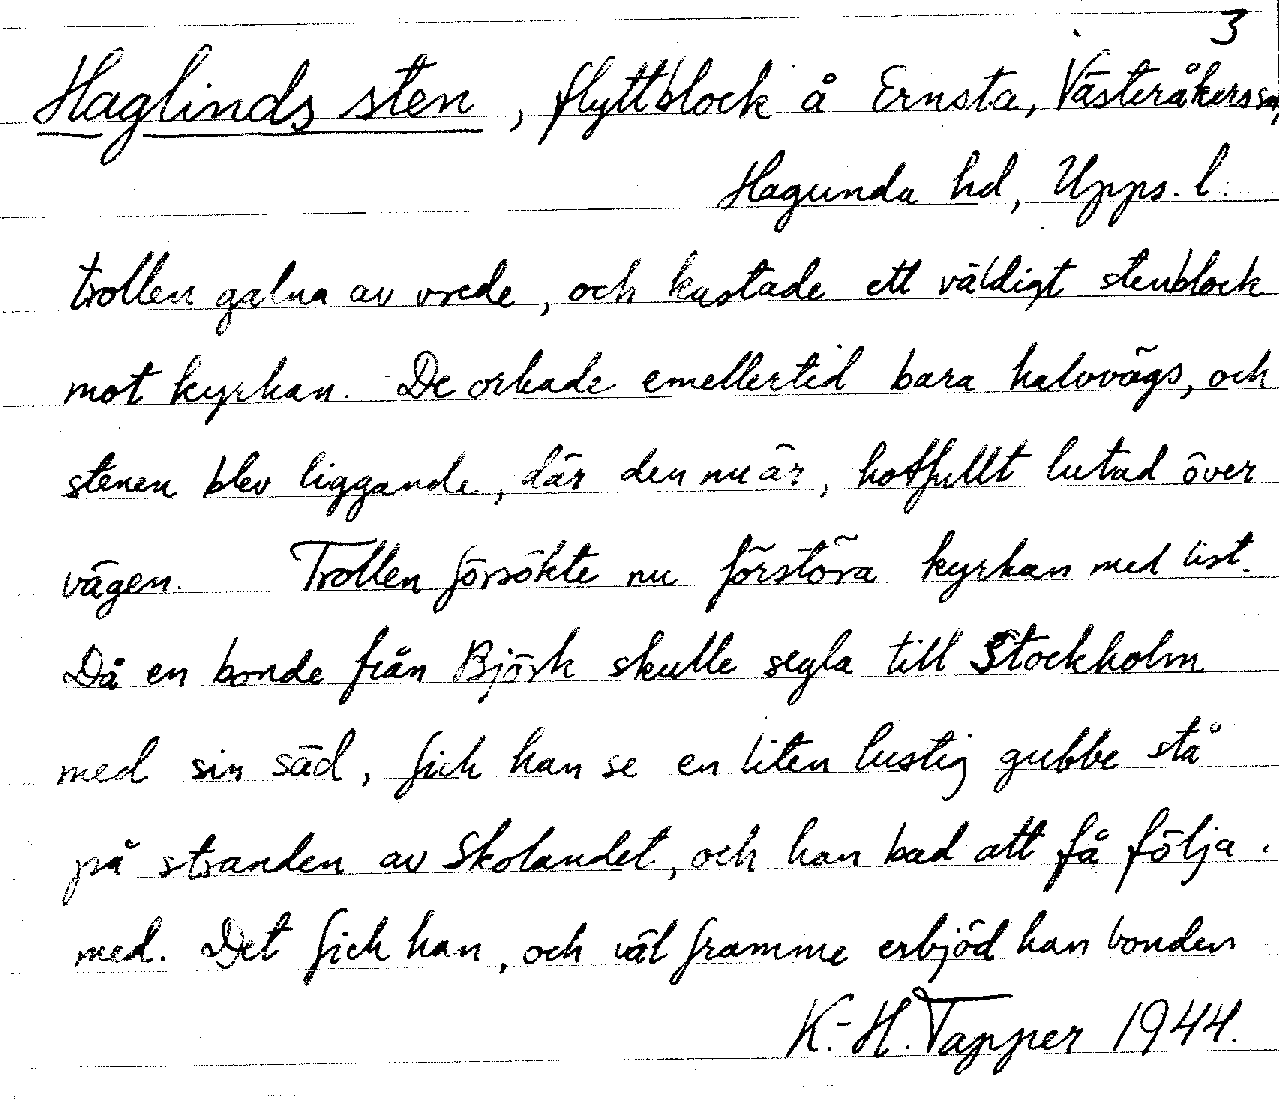 3
Haglinds sten, flyttblock å Ernsta, Västeråkers sn,
Hagunda hd, Upps. l.
trollen galna av vrede, och kastade ett väldigt stenblock
mot kyrkan. De orkade emellertid bara halvvägs, och
stenen blev liggande, där den nu är, hotfullt lutad över
vägen. Trollen försökte nu förstöra kyrkan med list.
Då en bonde från Björk skulle segla till Stockholm
med sin säd, fick han se en liten lustig gubbe stå
på stranden av Skolandet, och han bad att få följa
med. Det fick han, och väl framme erbjöd han bonden
K.-H. Tapper 1944.